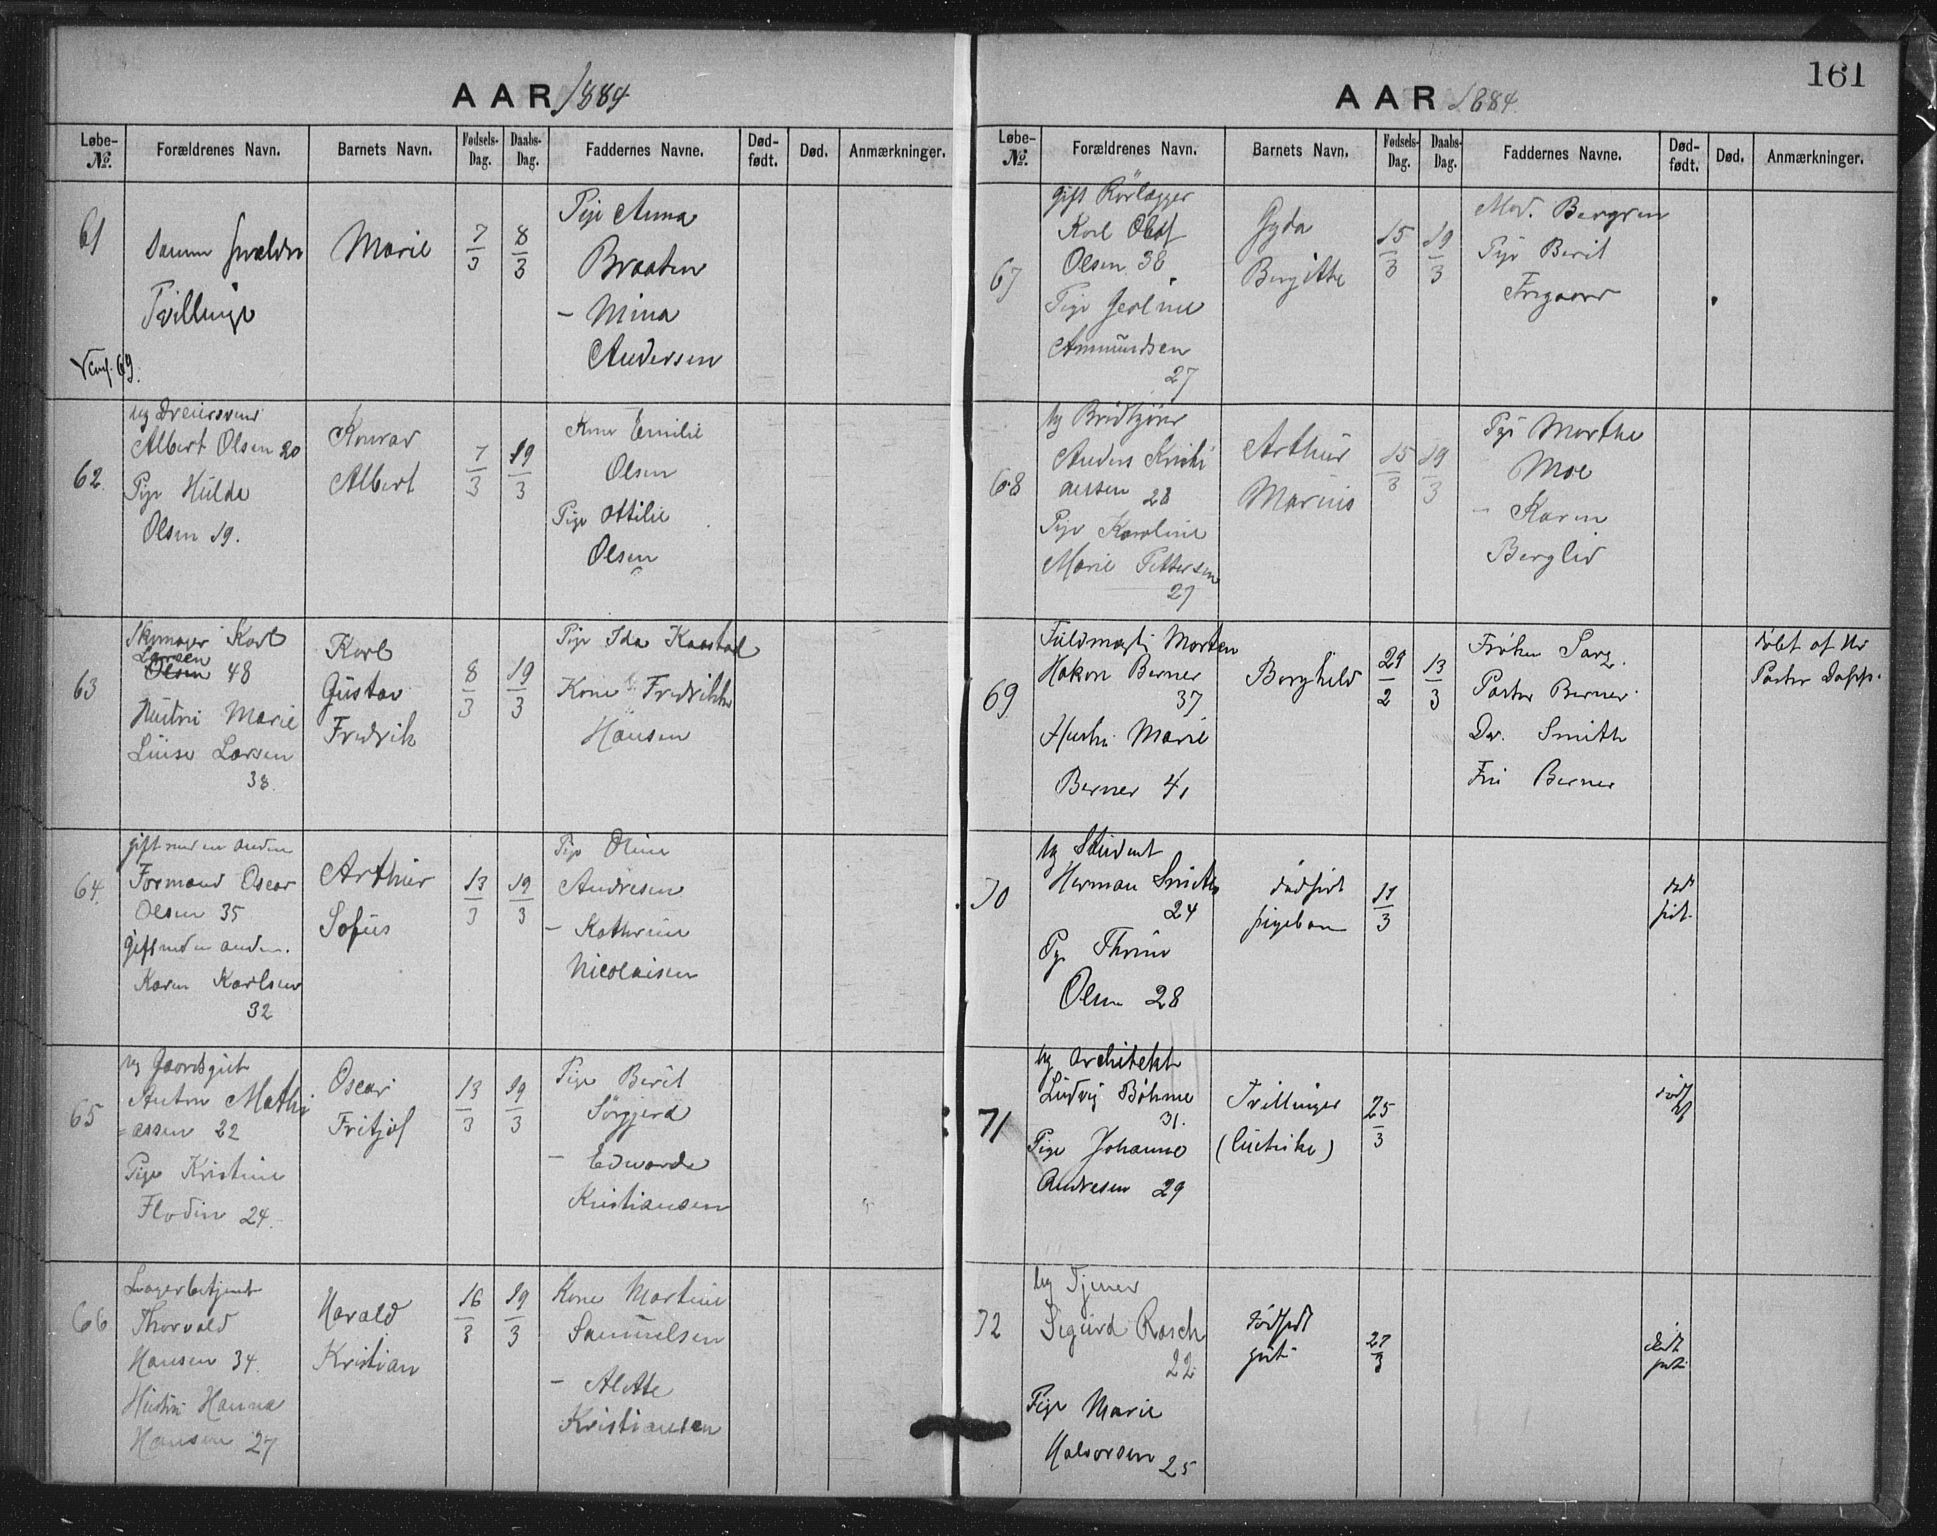 AAR 1884
Løbe-No. Forældrenes Navn. Barnets Navn. Fødsels-Dag. Daabs-Dag. Faddernes Navne. Død-født. Død. Anmærkninger.
61
Tvillinge
Marie
7/3
8/3
Pige Anna
Braaten
– Mina
Andersen
62
ug Dreiersvend
Albert Olsen 20
Pige Hulda
Olsen 19.
Konrad
Albert
7/3
19/3
Kone Emilie
Olsen
Pige Ottilie
Olsen
63
Skomager Karl
Larsen
Olsen 48
Hustru Marie
Luise Larsen
38
Karl
Gustav
Fredrik
8/3
19/3
Pige Ida Kaastad
Kone Fredrikke
Hansen
64.
gift med en anden
Formand Oscar
Olsen 35
gift med en anden.
Karen Karlsen
32
Arthur
Sofus
13/3
19/3
Pige Oline
Andresen
– Kathrine
Nicolaisen
65
ug Gaardsgut
Anton Mathi
= assen 22
Pige Kristine
Flodin 24.
Oscar
Fritjof
13/3
19/3
Pige Berit
Sørgjerd
– Edwarda
Kristiansen
66
Lagerbetjent
Thorvald
Hansen 34.
Hustru Hanna
Hansen 27
Harald
Kristian
16/3
19/3
Kone Martine
Samuelsen
– Alette
Kristiansen
161
AAR 1884
Løbe-No. Forældrenes Navn. Barnets Navn. Fødsels-Dag. Daabs-Dag. Faddernes Navne. Død-født. Død. Anmærkninger.
67
gift Rörlægger
Karl Olaf
Olsen 38
Pige
Amundsen
27
Gyda
Bergitte
15/3
19/3
Mad. Berggren
Pige Berit
68
ug Brødkjører
Anders Kristi
ansen 28
Pige Karoline
Marie Pettersen
27
Arthur
Marius
15/3
19/3
Pige Marthe
Moe
– Karen
Berglid
69
Fuldmægti Morten
Hakon Berner
37
Hustru Marie
Berner 41
Borghild
29/2
13/3
Frøken
Pastor Berner
Dr. Smith
Fru Berner
døbt af Hr
Pastor
70
ug Student
Herman Smith
24
Pige Thrine
Olsen 28
dødfødt
pigebarn
11/3
død
født
71
ug Architekt
Ludvig Böhme
31.
Pige Johanne
Andresen 29
Tvillinger
25/3
72
ug Tjener
Sigurd Rasch
22
Pige Marie
Halvorsen 25
dødfødt
gut
27/3